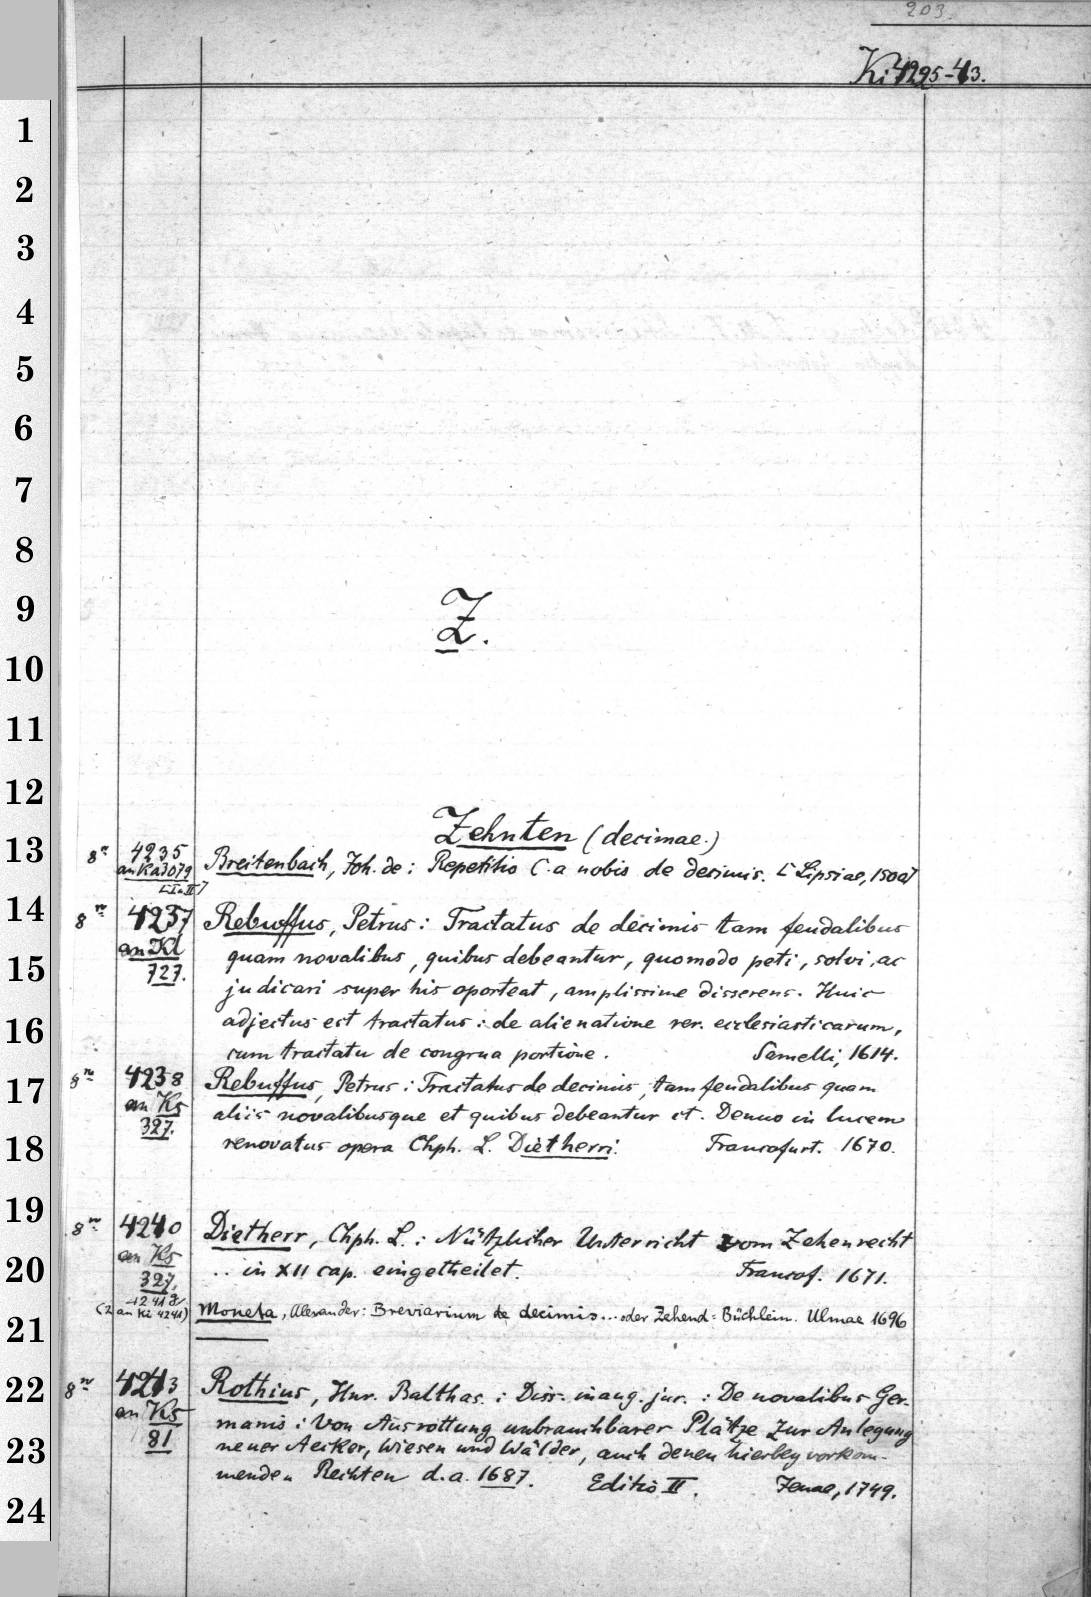 203.
Ki 4295-43.
1
2
3
4
5
6
7
8
9
10
11
12
13
14
15
16
17
18
19
20
21
22
23
24
Z.
Zehnten (decimae.)
8º 4235 Breitenbach, Joh. de: Repetitio C. a nobis de decimis. [Lipsiae, 1500]
an Ka3079
8º 4237 Rebuffus, Petrus: Tractatus de decimis tam feudalibus
an Kl quam novalibus, quibus debeantur, quomodo peti, solvi, ac
727. judicari super his oporteat, amplissime disserens. Huic
adjectus est tractatus: de alienatione rer. ecclesiasticarum,
cum tractatu de congrua portione. Samelli, 1614.
8º 4238 Rebuffus, Petrus: Tractatus de decimis, tam feudalibus quam
an Ks aliis novalibusque et quibus debeantur et. Denuo in lucem
327. renovatus opera Chph. L. Dietherri. Francofurt. 1670.
8º 4240 Dietherr, Chph. L.: Nützlicher Unterricht vom Zehenrecht
an Ks .. in XII cap. eingetheilet. Francof. 1671.
327.
(2 an Ki 4241) Moneta, Alexander: Breviarium de decimis... oder Zehend-Büchlein. Ulmae 1696
8º 4243 Rothius, Hnr. Balthas.: Diss. inaug. jur.: De novalibus Ger-
an Ks manis: Von Ausrottung unbrauchbarer Plätze zur Anlegung
81 neuer Aecker, Wiesen und Wälder, auch denen hierbey vorkom-
menden Rechten d. a. 1687. Editio II. Jenae, 1749.